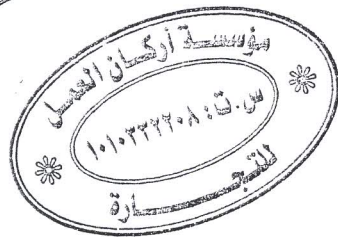 مؤسسة أركان العمل
س.ت: ١٠١٠٣٣٢٢٠٨
للتجارة